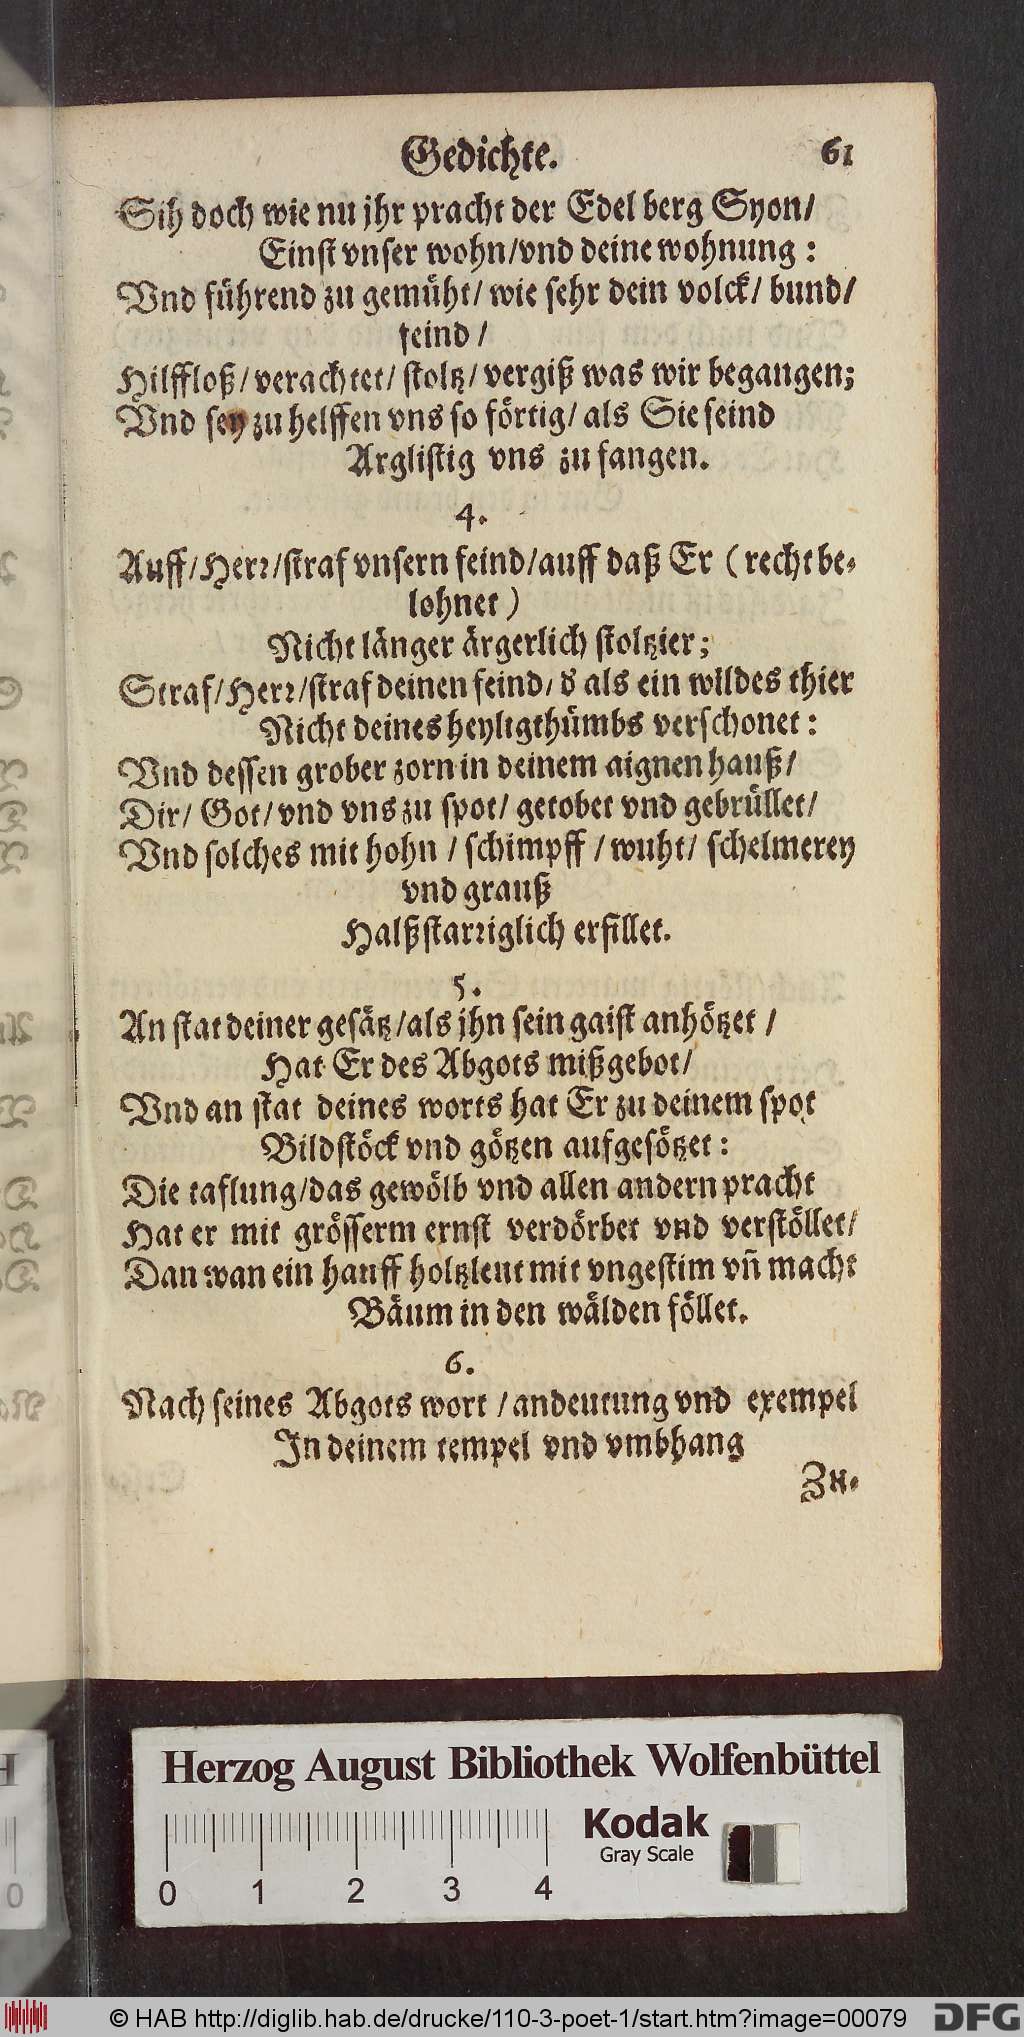 Gedichte. 61
Sih doch wie nu jhr pracht der Edel berg Syon/
Einst vnser wohn/vnd deine wohnung:
Vnd führend zu gemüht/ wie sehr dein volck/ bund/
feind/
Hilffloß/verachtet/ stoltz/vergiß was wir begangen;
Vnd sey zu helffen vns so förtig/ als Sie seind
Arglistig vns zu fangen.
4.
Auff/Herr/straf vnsern feind/auff daß Er (recht be-
lohnet)
Nicht länger ärgerlich stoltzier;
Straf/Herr/straf deinen feind/ d̕ als ein wildes thier
Nicht deines heyligthümbs verschonet:
Vnd dessen grober zorn in deinem aignen hauß/
Dir/ Got/ vnd vns zu spot/ getobet vnd gebrüllet/
Vnd solches mit hohn / schimpff / wuht/ schelmerey
vnd grauß
Halßstarriglich erfillet.
5.
An stat deiner gesätz/als jhn sein gaist anhötzet /
Hat Er des Abgots mißgebot/
Vnd an stat deines worts hat Er zu deinem spot
Bildstöck vnd götzen aufgesötzet:
Die taflung/das gewölb vnd allen andern pracht
Hat er mit grösserm ernst verdörbet vnd verstöllet/
Dan wan ein hauff holtzleut mit vngestim vñ macht
Bäum in den wälden föllet.
6.
Nach seines Abgots wort / andeutung vnd exempel
In deinem tempel vnd vmbhang
Zu-
Herzog August Bibliothek Wolfenbüttel
Kodak
Gray Scale
0 1 2 3 4
© HAB http://diglib.hab.de/drucke/110-3-poet-1/start.htm?image=00079
DFG